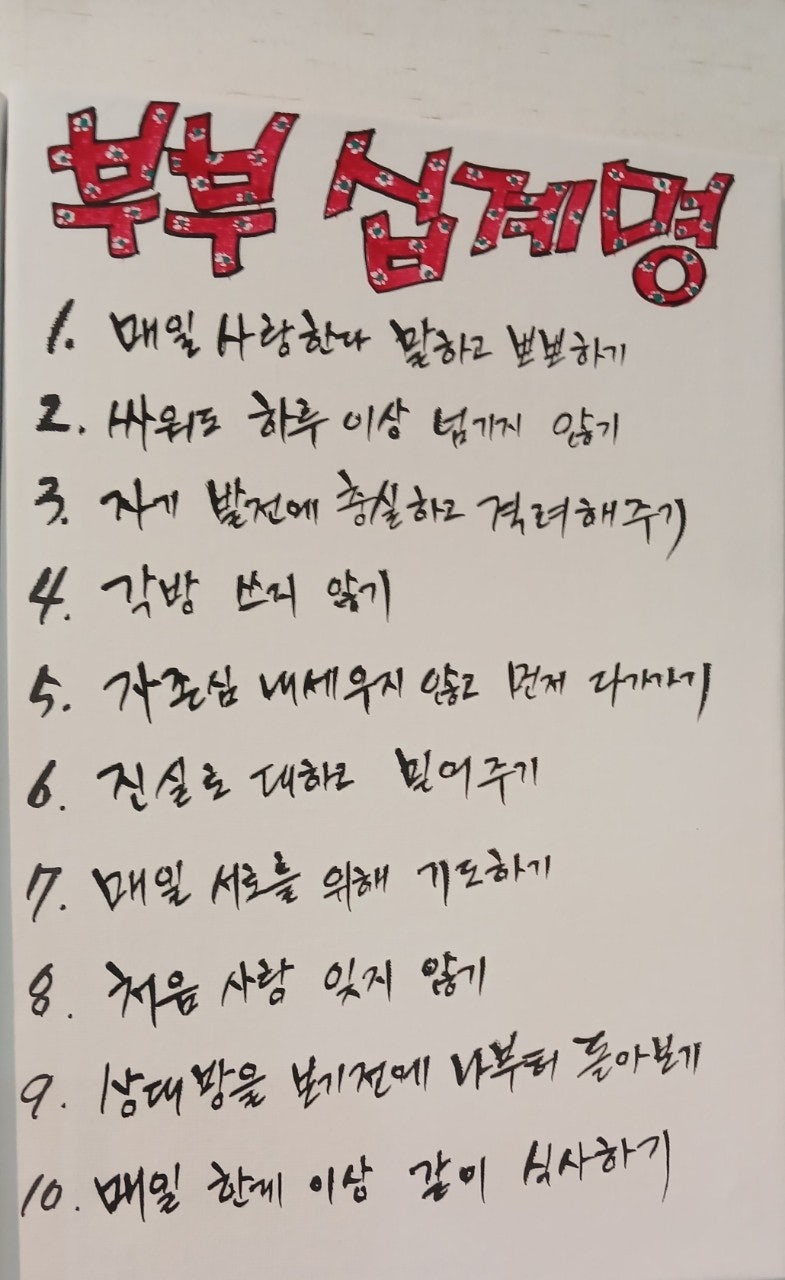 부부 십계명
1. 매일 사랑한다 말하고 뽀뽀하기
2. 싸워도 하루 이상 넘기지 않기
3. 자기 발전에 충실하고 격려해주기
4. 각방 쓰지 않기
5. 자존심 내세우지 않고 먼저 다가가기
6. 진실로 대하고 믿어주기
7. 매일 서로를 위해 기도하기
8. 처음 사랑 잊지 않기
9. 상대방을 보기전에 나부터 돌아보기
10. 매일 한끼 이상 같이 식사하기